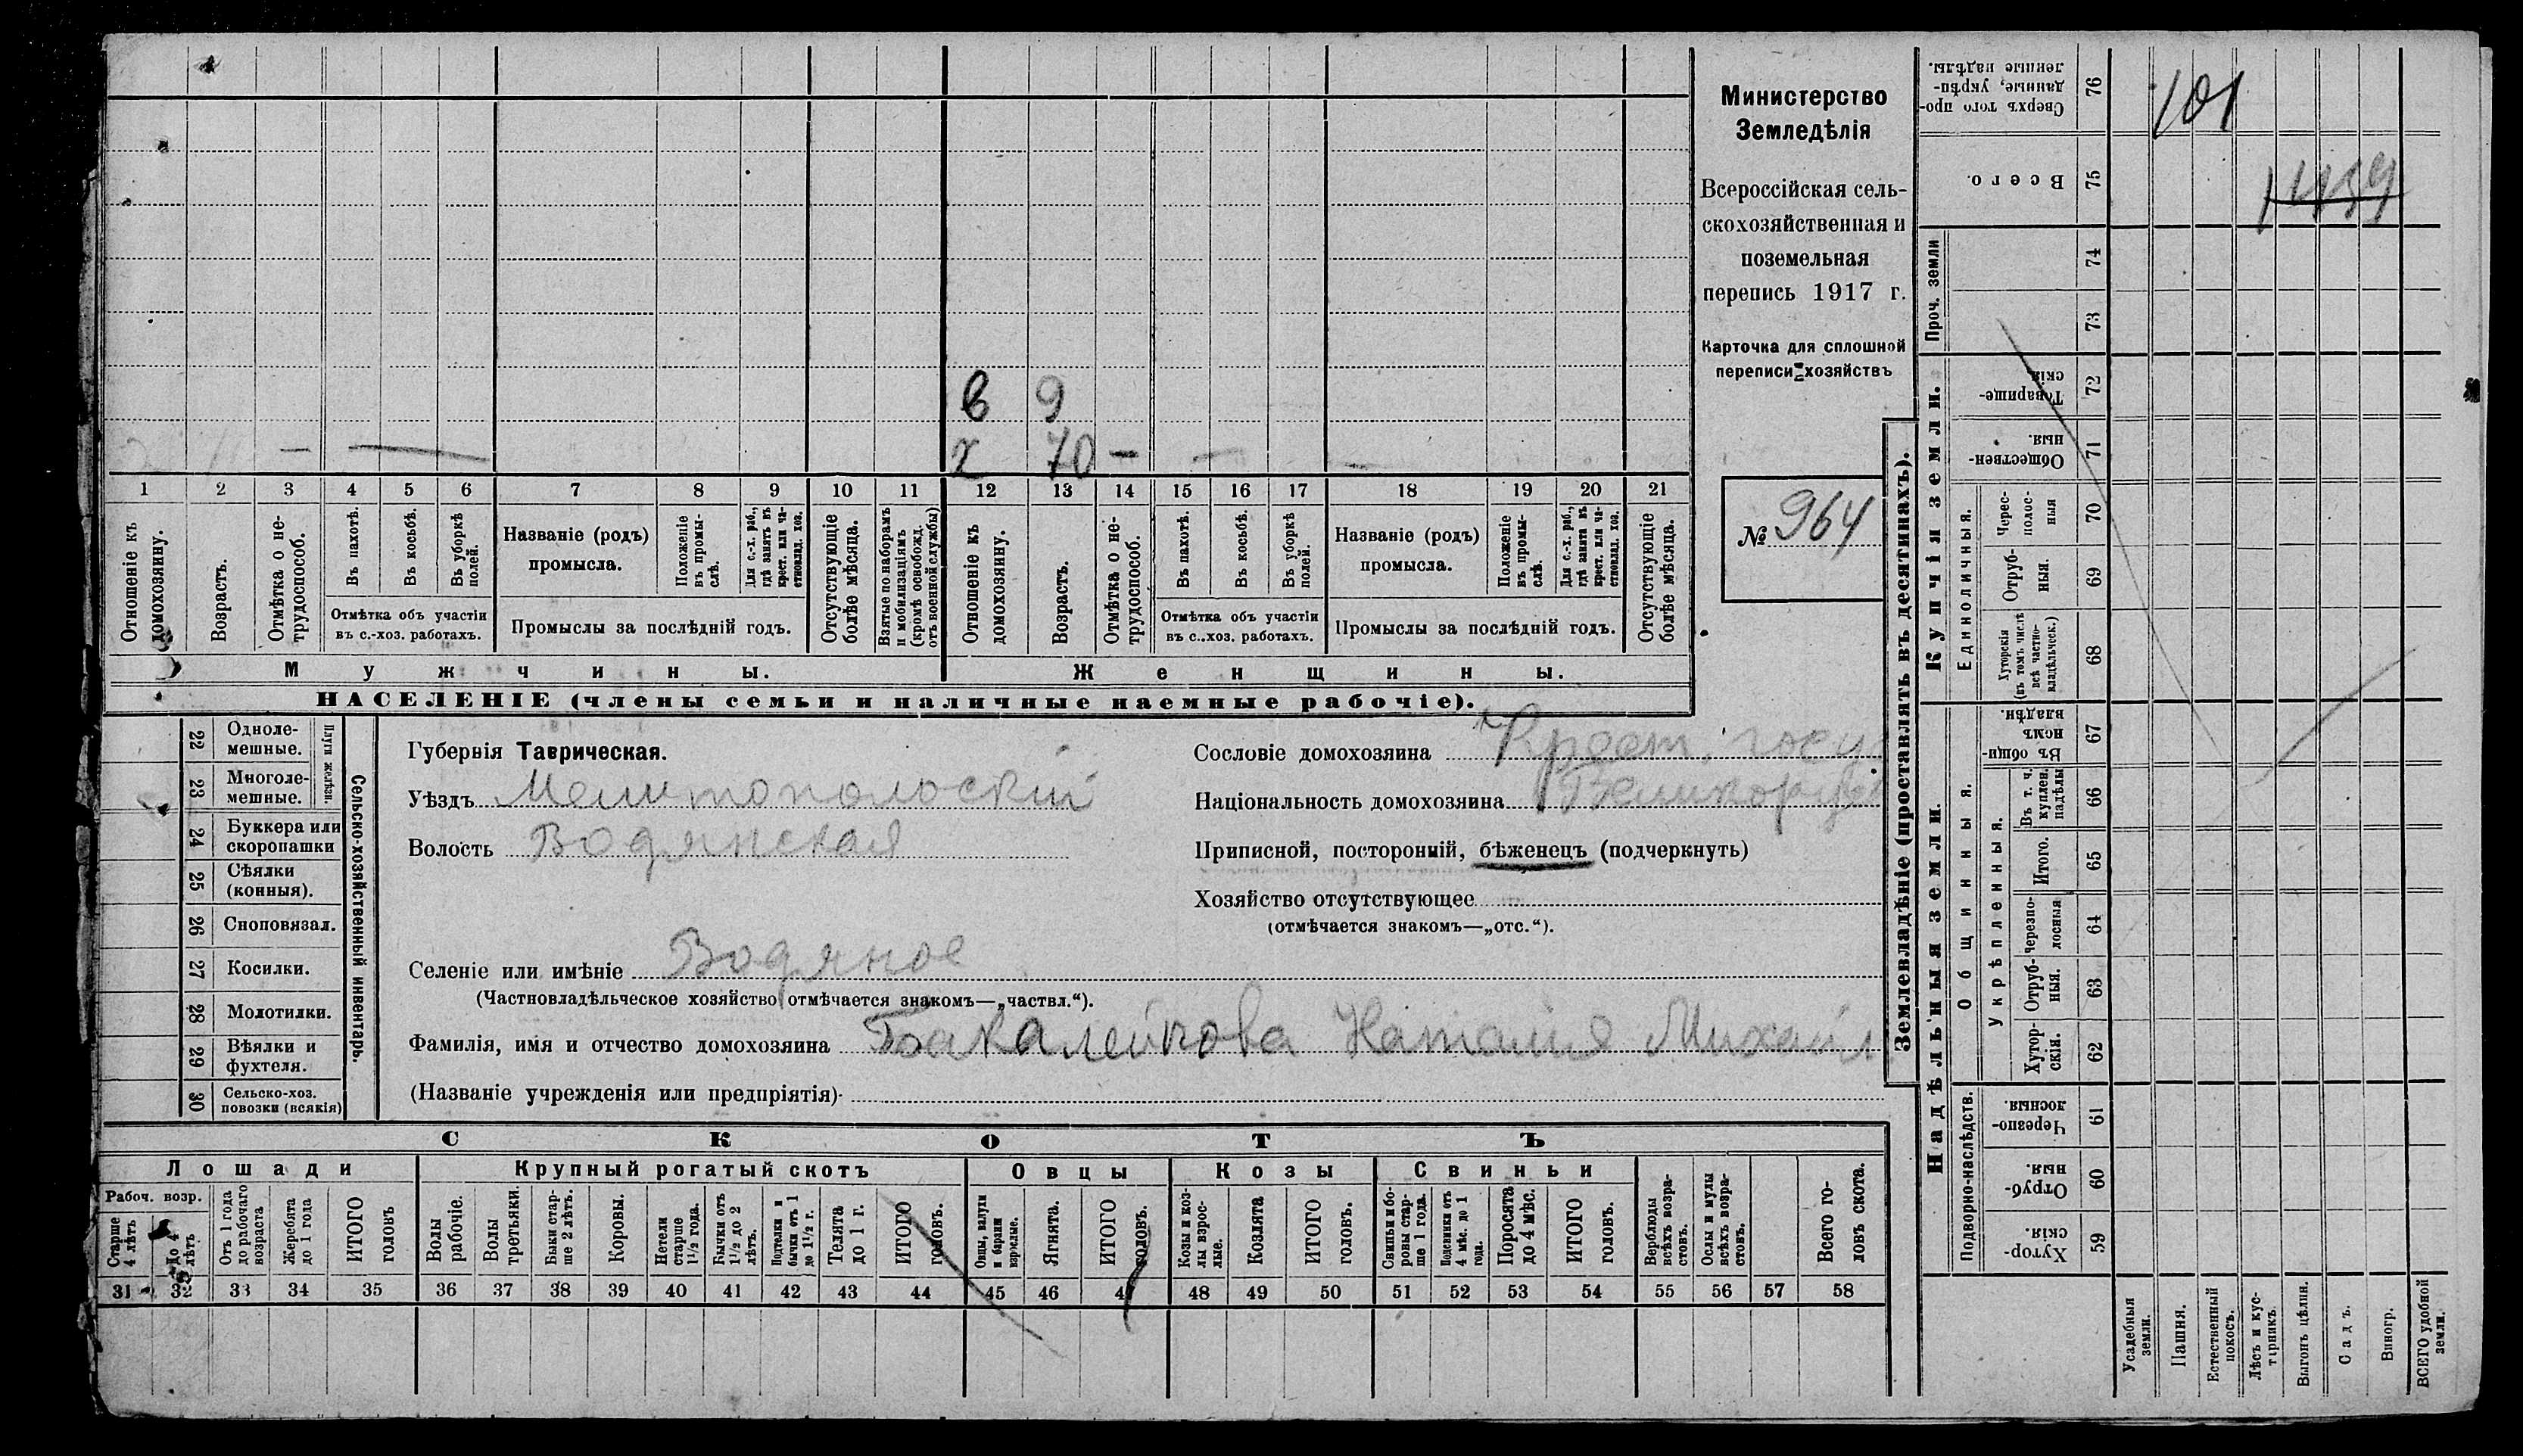 в 9
х 70 — — —
1 2 3 4 5 6 7 8 9 10 11 12 13 14 15 16 17 18 19 20 21
Отношеніе къ домохозяину.
Возрастъ.
Отмѣтка о не-
трудоспособ.
Въ пахотѣ.
Въ косьбѣ.
Въ уборкѣ
полей.
Отмѣтка объ участіи
въ с.-хоз. работахъ.
Названіе (родъ)
промысла.
Положеніе
въ промы-
слѣ.
Для с.-х. раб.,
гдѣ занятъ въ
крест. или ча-
стновлад. хоз.
Промыслы за послѣдній годъ.
Отсутствующіе
болѣе мѣсяца.
Взятые по наборамъ
и мобилизаціямъ
(кромѣ освобожд.
отъ военной службы)
Отношеніе къ
домохозяину.
Возрастъ.
Отмѣтка о не-
трудоспособ.
Въ пахотѣ.
Въ косьбѣ.
Въ уборкѣ
полей.
Отмѣтка объ участіи
въ с..хоз. работахъ.
Названіе (родъ)
промысла.
Положеніе
въ промы-
слѣ.
Для с.-х. раб.,
гдѣ занята въ
крест. или ча-
стновлад. хоз.
Промыслы за послѣдній годъ.
Отсутствующіе
болѣе мѣсяца.
Мужчины.
Женщины.
НАСЕЛЕНІЕ (члены семьи и наличные наемные рабочіе).
Министерство
Земледѣлія
Всероссійская сель-
скохозяйственная и
поземельная
перепись 1917 г.
Карточка для сплошной
переписи хозяйствъ
№ 964
22 Одноле-
мешные.
23 Многоле-
мешные.
Плуги желѣзн.
24 Буккера или
скоропашки
25 Сѣялки
(конныя).
26 Сноповязал.
27 Косилки.
28 Молотилки.
29 Вѣялки и
фухтеля.
30 Сельско-хоз.
повозки (всякія)
Сельско-хозяйственный инвентарь.
Губернія Таврическая.
Уѣздъ Мелитопольскій
Волость Водянская
Селеніе или имѣніе Водяное
(Частновладѣльческое хозяйство отмѣчается знакомъ—„частвл.“).
Фамилія, имя и отчество домохозяина Бакалейкова Наталія Михайл
(Названіе учрежденія или предпріятія)
Сословіе домохозяина Крест.
Національность домохозяина Великор
Приписной, посторонній, бѣженецъ (подчеркнуть)
Хозяйство отсутствующее
(отмѣчается знакомъ—„отс.“).
СКОТЪ
Лошади
Крупный рогатый скотъ
Овцы
Козы
Свиньи
Рабоч. возр.
Старше
4 лѣтъ
До 4
лѣтъ
Отъ 1 года
до рабочаго
возраста
Жеребята
до 1 года
ИТОГО
головъ
Волы
рабочіе.
Волы
третьяки.
Быки стар-
ше 2 лѣтъ.
Коровы.
Нетели
старше
1½ года.
Бычки отъ
1½ до 2
лѣтъ.
Подтелки и
бычки отъ 1
до 1½ г.
Телята
до 1 г.
ИТОГО
головъ.
Овцы, валухи
и бараны
взрослые.
Ягнята.
ИТОГО
головъ.
Козы и коз-
лы взрос-
лые.
Козлята
ИТОГО
головъ.
Свиньи и бо-
ровы стар-
ше 1 года.
Подсвинки отъ
4 мѣс. до 1
года.
Поросята
до 4 мѣс.
ИТОГО
головъ.
Верблюды
всѣхъ возра-
стовъ.
Ослы и мулы
всѣхъ возра-
стовъ.
Всего го-
ловъ скота.
31 32 33 34 35 36 37 38 39 40 41 42 43 44 45 46 47 48 49 50 51 52 53 54 55 56 57 58
Землевладѣніе (проставлять въ десятинахъ).
Купчія земли.
Надѣльныя земли.
Проч. земли
Единоличныя.
Общинныя.
Укрѣпленныя.
Подворно-наслѣдств.
Сверхъ того про-
данные, укрѣп-
ленные надѣлы.
76
101
Всего.
75
74
73
Товарище-
скія.
72
Обществен-
ныя.
71
Черес-
полос-
ныя
70
Отруб-
ныя.
69
Хуторскія
(въ томъ числѣ
всѣ частно-
владѣльческ.)
68
Въ общин-
номъ
владѣн.
67
Въ т. ч.
куплен.
надѣлы
66
Итого.
65
Черезпо-
лосныя
64
Отруб-
ныя.
63
Хутор-
скія.
62
Черезпо-
лосныя.
61
Отруб-
ныя.
60
Хутор-
скія.
59
Усадебныя
земли.
Пашня.
Естественный
покосъ.
Лѣсъ и кус-
тарникъ.
Выгонъ цѣлин.
Садъ.
Виногр.
ВСЕГО удобной
земли.